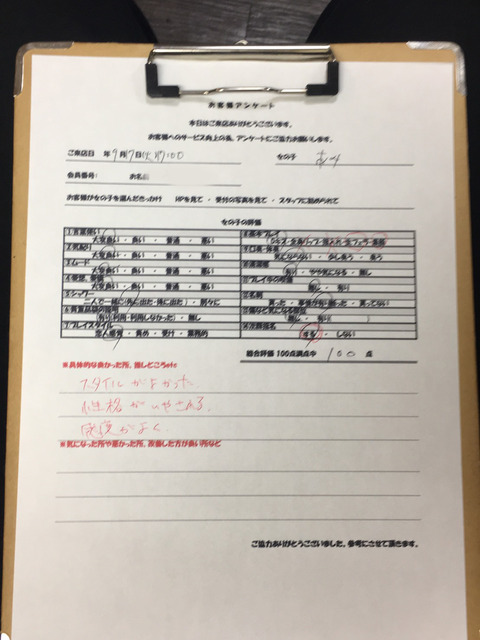 お客様アンケート
本日はご来店ありがとうございます。
お客様へのサービス向上の為、アンケートにご協力お願いします。
ご来店日 年 9月17日(火)17:00 女の子
会員番号: お名
お客様が女の子を選んだきっかけ HPを見て ・ 受付の写真を見て ・ スタッフに勧められて
女の子の評価
1.言葉使い
大変良い ・ 良い ・ 普通 ・ 悪い
2.気配り
大変良い ・ 良い ・ 普通 ・ 悪い
3.ムード
大変良い ・ 良い ・ 普通 ・ 悪い
大変良い ・ 良い ・ 普通 ・ 悪い
5.シャワー
二人で一緒に(先に出た・後に出た) ・ 別々に
有り(利用・利用しなかった) ・ 無し
7.プレイスタイル
恋人感覚 ・ 責め ・ 受け ・ 業務的
8.基本プレイ
気にならない ・ 少し有う ・ 有う
有り ・ やや気になる ・ 無し
無し ・ 有り
12.名刺
貰った ・ 貰ってない
無し ・ 有り( )
14.次回指名
する ・ しない
総合評価 100点満点中 100 点
※具体的な良かった所、推しどころetc
スタイルがよかった
性格がいやされる
感度がよく
※気になった所や悪かった所、改善した方が良い所など
ご協力ありがとうございました。参考にさせて頂きます。